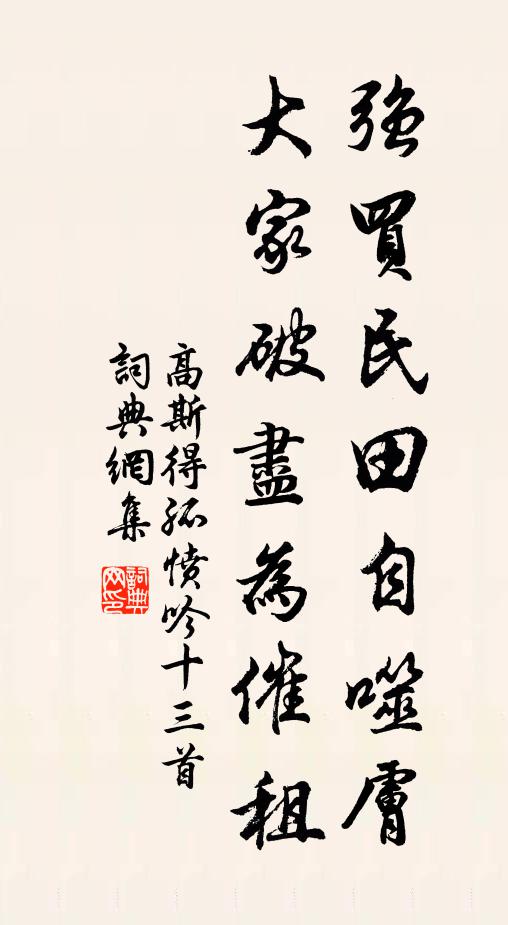 强買民田自噬膚
大家破盡為催租
高斯得孤憤吟十三首
詞典網集
詞典網印